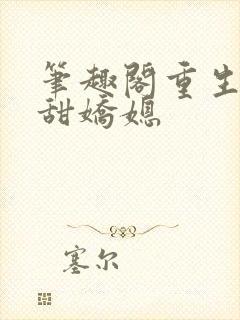 筆趣閣重生
甜嬌媳
塞尔